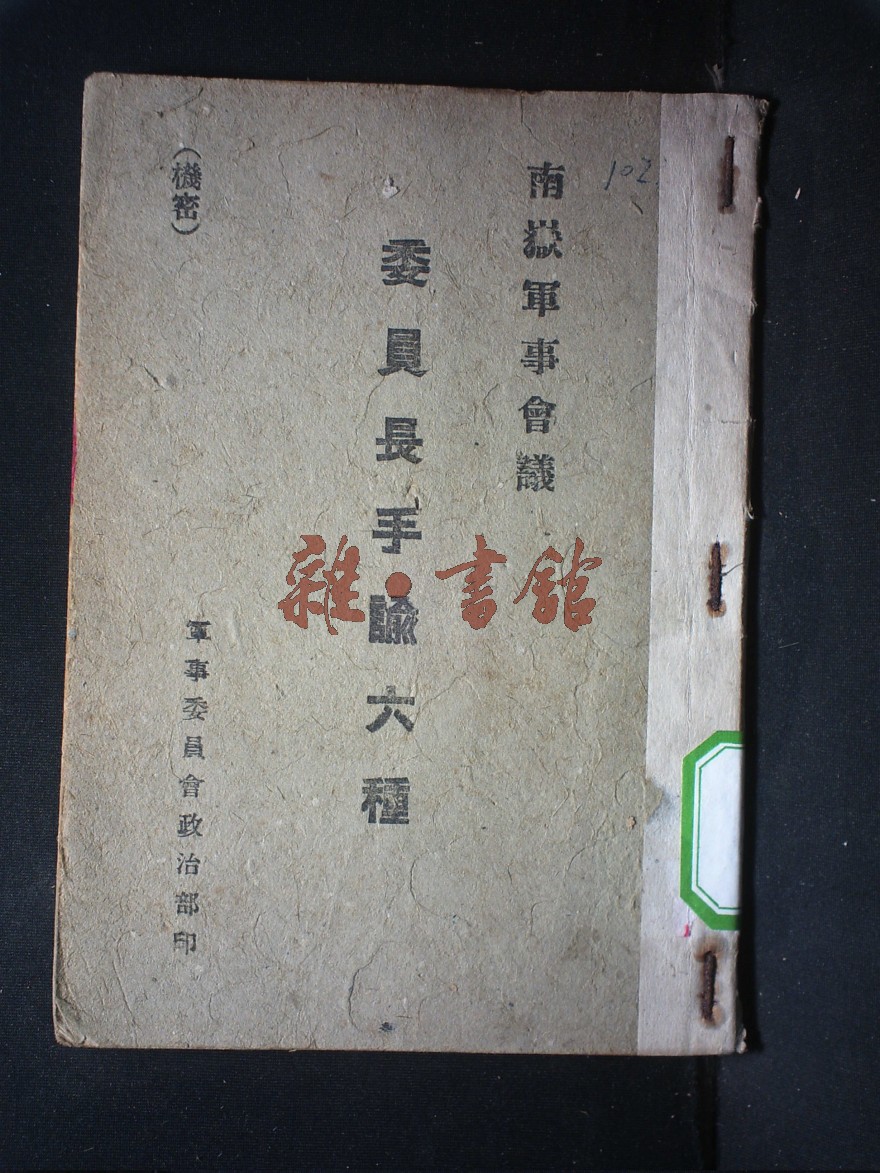 102
南嶽軍事會議
委員長手諭六種
(機密)
軍事委員會政治部印
雜·書館